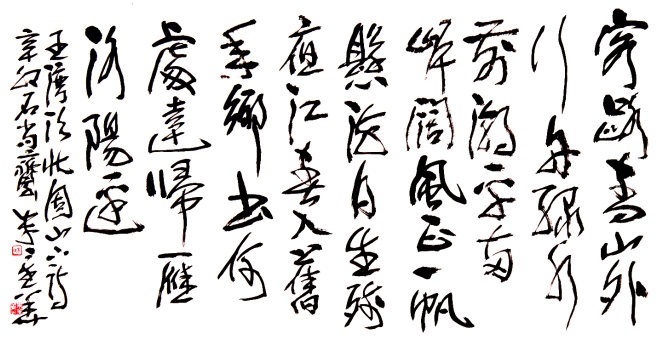 客路青山外
行舟綠水
前潮平兩
岸闊風正一帆
懸海日生殘
夜江春入舊
年鄉書何
處達歸雁
洛陽邊
王灣次北固山下詩
石尚齋